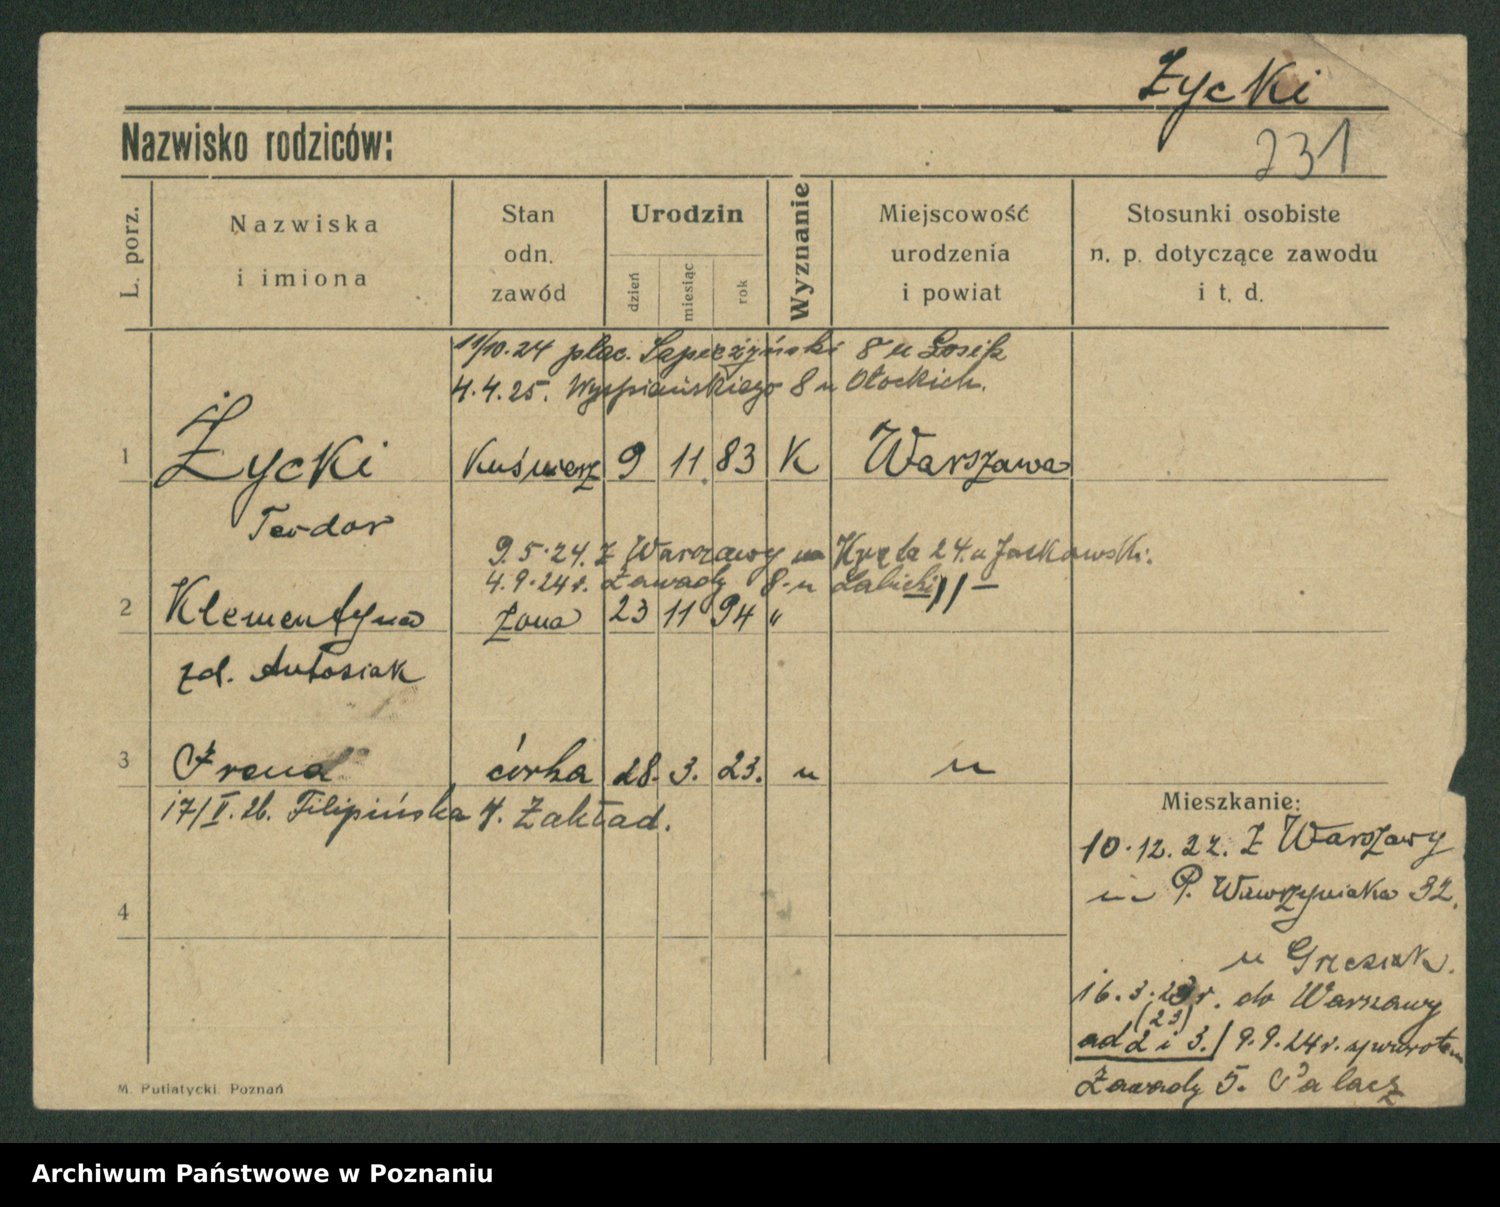 Życki
231
Nazwisko rodziców:
L. porz.
Nazwiska
i imiona
Stan
odn.
zawód
Urodzin
dzień
miesiąc
rok
Wyznanie
Miejscowość
urodzenia
i powiat
Stosunki osobiste
n. p. dotyczące zawodu
i t. d.
11/10.24 plac. Sapieżyński 8 u
4.4.25. Wyspiańskiego 8 u Otockich.
1 Życki Kuśnierz 9 11 83 K Warszawa
Teodor
9.5.24. z Warszawy Kręta 24. u Jaskowski.
4.9.24r. Zawady 8 u
2 Klementyna żona 23 11 94 "
zd. Antosiak
3 Irena córka 28. 3. 23. u u
17/V.26. Filipińska 4. Zakład.
Mieszkanie:
10.12.22. z Warszawy
P. Wawrzyniaka 32.
u Grzesiak.
16.3.23 r. do Warszawy
(23)
ad 2 i 3./ 9.9.24 r. zpowrotem
Zawady 5. Palacz
4
M. Putiatycki, Poznań
Archiwum Państwowe w Poznaniu